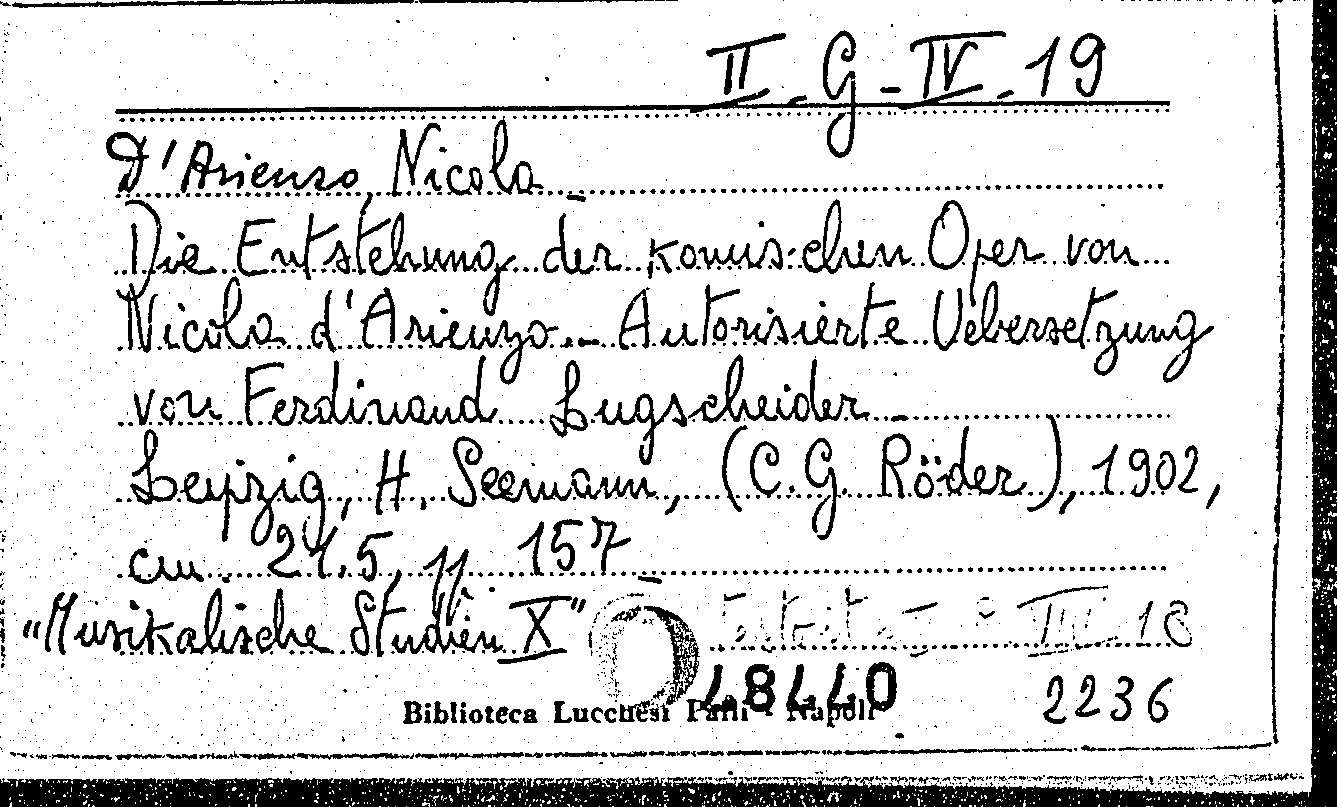 II - G - IV - 19
D'Arienzo, Nicola
Die Entstehung der komischen Oper von
Nicola d'Arienzo. - Autorisierte Uebersetzung
von Ferdinand Lugscheider -
Leipzig, H. Seemann, (C.G. Röder), 1902,
cm. 21.5, pp. 157 -
"Musikalische Studien X"
III 18
48440
Biblioteca Lucchesi Palli - Napoli
2236